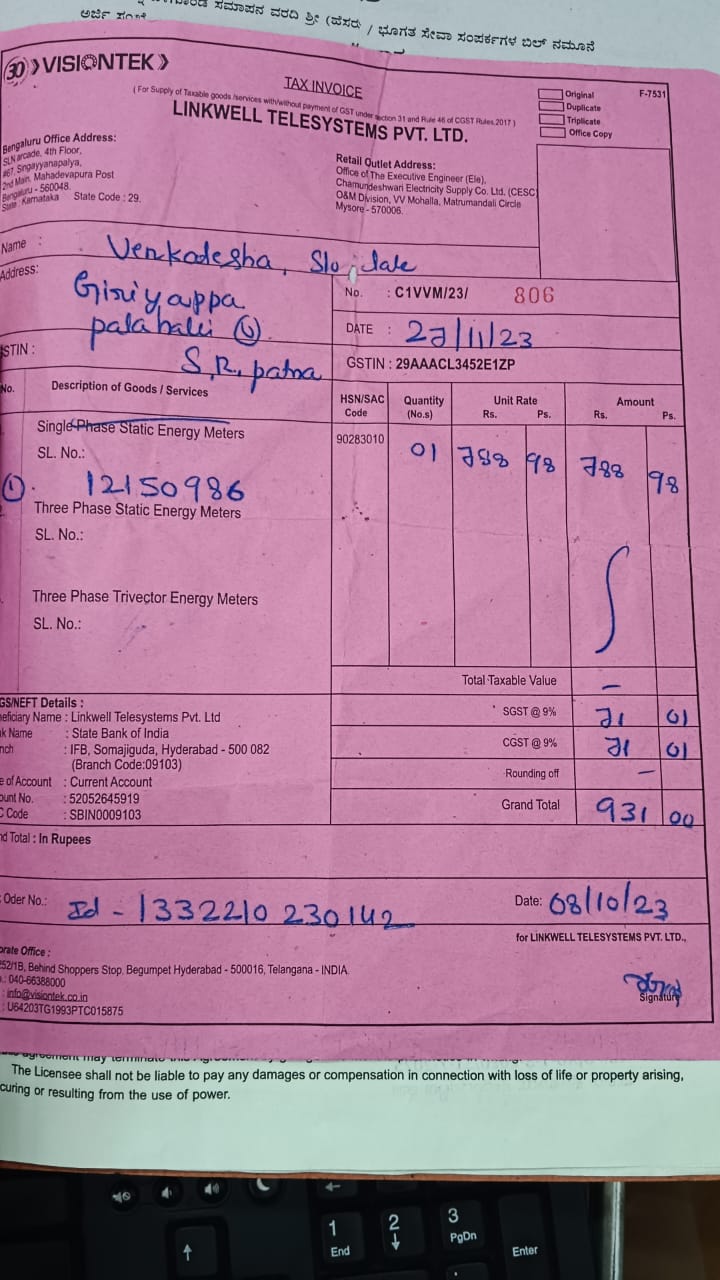 ಅರ್ಜಿ
ಸಮಾಪನ ವರದಿ ಶ್ರೀ (ಹೆಸರು / ಭೂಗತ ಸೇವಾ ಸಂಪರ್ಕಗಳ ಬಿಲ್ ನಮೂನೆ
30 VISIONTEK
TAX INVOICE
(For Supply of Taxable goods /services with/without payment of GST under section 31 and Rule 46 of CGST Rules,2017)
LINKWELL TELESYSTEMS PVT. LTD.
Original
Duplicate
Triplicate
Office Copy
F-7531
Bengaluru Office Address:
SLN arcade, 4th Floor,
#67, Singayyanapalya,
2nd Main, Mahadevapura Post
Bengaluru - 560048.
State : Karnataka State Code : 29.
Retail Outlet Address:
Office of The Executive Engineer (Ele),
Chamundeshwari Electricity Supply Co. Ltd. (CESC)
O&M Division, VV Mohalla, Matrumandali Circle
Mysore - 570006.
Name : Venkadesha, S/o, late
Address: Giriyappa
palahalli
S.R. patna
No. : C1VVM/23/ 806
DATE : 27/11/23
STIN :
GSTIN : 29AAACL3452E1ZP
No. Description of Goods / Services HSN/SAC Code Quantity (No.s) Unit Rate Rs. Ps. Amount Rs. Ps.
Single Phase Static Energy Meters 90283010 01 788 98 788 98
SL. No.:
1. 12150986
Three Phase Static Energy Meters
SL. No.:
Three Phase Trivector Energy Meters
SL. No.:
Total Taxable Value –
GS/NEFT Details :
eficiary Name : Linkwell Telesystems Pvt. Ltd
k Name : State Bank of India
nch : IFB, Somajiguda, Hyderabad - 500 082
(Branch Code:09103)
e of Account : Current Account
ount No. : 52052645919
C Code : SBIN0009103
SGST @ 9% 71 01
CGST @ 9% 71 01
Rounding off –
Grand Total 931 00
nd Total : In Rupees
Oder No.: Id - 1332210 230142
Date: 08/10/23
for LINKWELL TELESYSTEMS PVT. LTD.,
orate Office :
252/1B, Behind Shoppers Stop, Begumpet Hyderabad - 500016, Telangana - INDIA
.: 040-66388000
: info@visiontek.co.in
: U64203TG1993PTC015875
Signature
The Licensee shall not be liable to pay any damages or compensation in connection with loss of life or property arising,
curing or resulting from the use of power.
1
End
2
3
PgDn
Enter